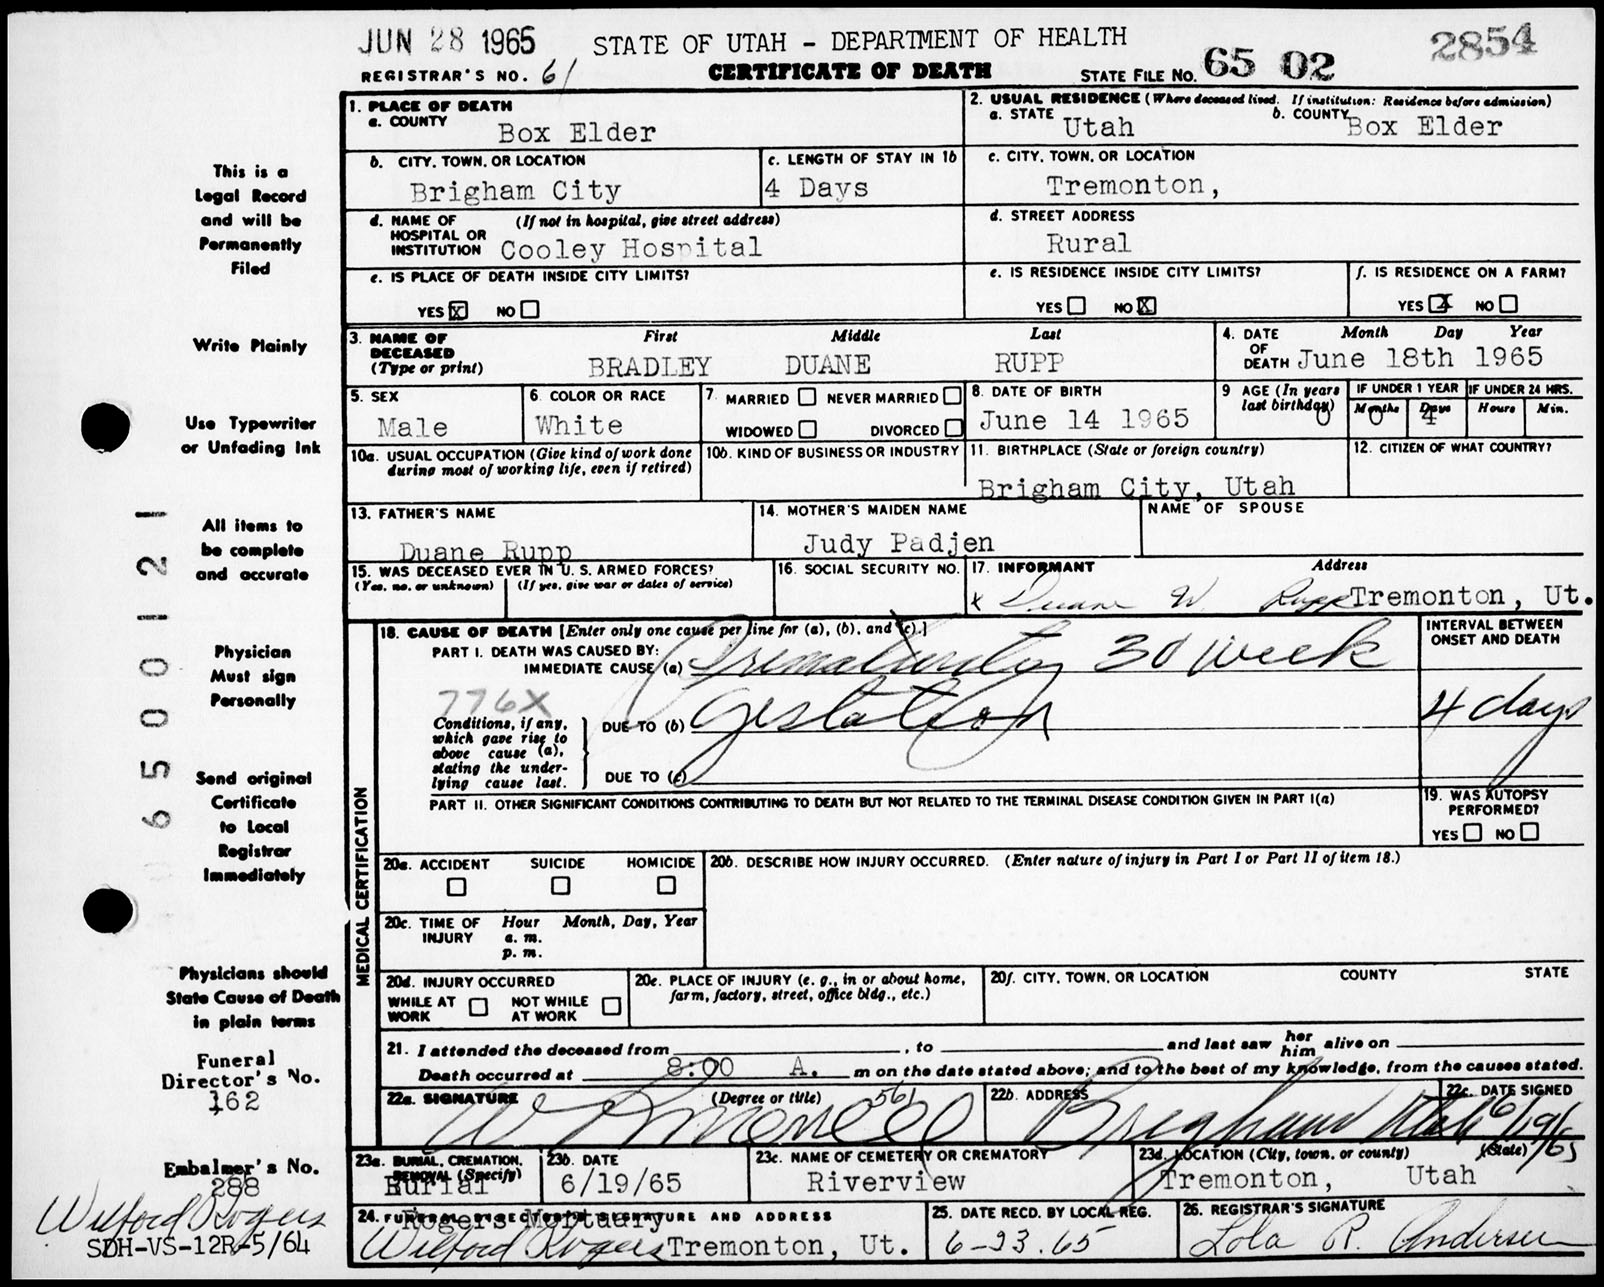 JUN 28 1965 STATE OF UTAH - DEPARTMENT OF HEALTH 2854
REGISTRAR'S NO. 61 CERTIFICATE OF DEATH STATE FILE NO. 65 02
1. PLACE OF DEATH
a. COUNTY Box Elder
2. USUAL RESIDENCE (Where deceased lived. If institution: Residence before admission)
a. STATE Utah b. COUNTY Box Elder
b. CITY, TOWN, OR LOCATION Brigham City
c. LENGTH OF STAY IN 1b 4 Days
c. CITY, TOWN, OR LOCATION Tremonton,
d. NAME OF HOSPITAL OR INSTITUTION (If not in hospital, give street address) Cooley Hospital
d. STREET ADDRESS Rural
e. IS PLACE OF DEATH INSIDE CITY LIMITS?
YES X NO
e. IS RESIDENCE INSIDE CITY LIMITS?
YES NO X
f. IS RESIDENCE ON A FARM?
YES X NO
3. NAME OF DECEASED (Type or print) First Middle Last
BRADLEY DUANE RUPP
4. DATE OF DEATH Month Day Year
June 18th 1965
5. SEX Male
6. COLOR OR RACE White
7. MARRIED NEVER MARRIED
WIDOWED DIVORCED
8. DATE OF BIRTH June 14 1965
9 AGE (In years last birthday) 0
IF UNDER 1 YEAR Months 0 Days 4
IF UNDER 24 HRS. Hours Min.
10a. USUAL OCCUPATION (Give kind of work done during most of working life, even if retired)
10b. KIND OF BUSINESS OR INDUSTRY
11. BIRTHPLACE (State or foreign country) Brigham City, Utah
12. CITIZEN OF WHAT COUNTRY?
13. FATHER'S NAME Duane Rupp
14. MOTHER'S MAIDEN NAME Judy Padjen
NAME OF SPOUSE
15. WAS DECEASED EVER IN U. S. ARMED FORCES?
(Yes, no, or unknown) (If yes, give war or dates of service)
16. SOCIAL SECURITY NO.
17. INFORMANT Address
x Duane W. Rupp Tremonton, Ut.
MEDICAL CERTIFICATION
18. CAUSE OF DEATH [Enter only one cause per line for (a), (b), and (c).]
INTERVAL BETWEEN ONSET AND DEATH
PART I. DEATH WAS CAUSED BY:
IMMEDIATE CAUSE (a) Prematurity 30 week
776X
Conditions, if any, which gave rise to above cause (a), stating the underlying cause last.
DUE TO (b) gestation 4 days
DUE TO (c)
PART II. OTHER SIGNIFICANT CONDITIONS CONTRIBUTING TO DEATH BUT NOT RELATED TO THE TERMINAL DISEASE CONDITION GIVEN IN PART I(a)
19. WAS AUTOPSY PERFORMED?
YES NO
20a. ACCIDENT SUICIDE HOMICIDE
20b. DESCRIBE HOW INJURY OCCURRED. (Enter nature of injury in Part I or Part II of item 18.)
20c. TIME OF INJURY Hour Month, Day, Year
a. m.
p. m.
20d. INJURY OCCURRED
WHILE AT WORK NOT WHILE AT WORK
20e. PLACE OF INJURY (e. g., in or about home, farm, factory, street, office bldg., etc.)
20f. CITY, TOWN, OR LOCATION COUNTY STATE
21. I attended the deceased from , to and last saw her him alive on
Death occurred at 8:00 A. m on the date stated above; and to the best of my knowledge, from the causes stated.
22a. SIGNATURE (Degree or title) 561
22b. ADDRESS Brigham Utah
22c. DATE SIGNED 6/19/65
23a. BURIAL, CREMATION, REMOVAL (Specify) Burial
23b. DATE 6/19/65
23c. NAME OF CEMETERY OR CREMATORY Riverview
23d. LOCATION (City, town, or county) (State)
Tremonton, Utah
24. FUNERAL DIRECTOR'S SIGNATURE AND ADDRESS
Rogers Mortuary
Wilford Rogers Tremonton, Ut.
25. DATE RECD. BY LOCAL REG. 6-23-65
26. REGISTRAR'S SIGNATURE Lola R. Andersen
This is a
Legal Record
and will be
Permanently
Filed
Write Plainly
Use Typewriter
or Unfading Ink
All items to
be complete
and accurate
Physician
Must sign
Personally
Send original
Certificate
to Local
Registrar
Immediately
Physicians should
State Cause of Death
in plain terms
Funeral
Director's No.
162
Embalmer's No.
288
Wilford Rogers
SDH-VS-12R-5/64
6500121